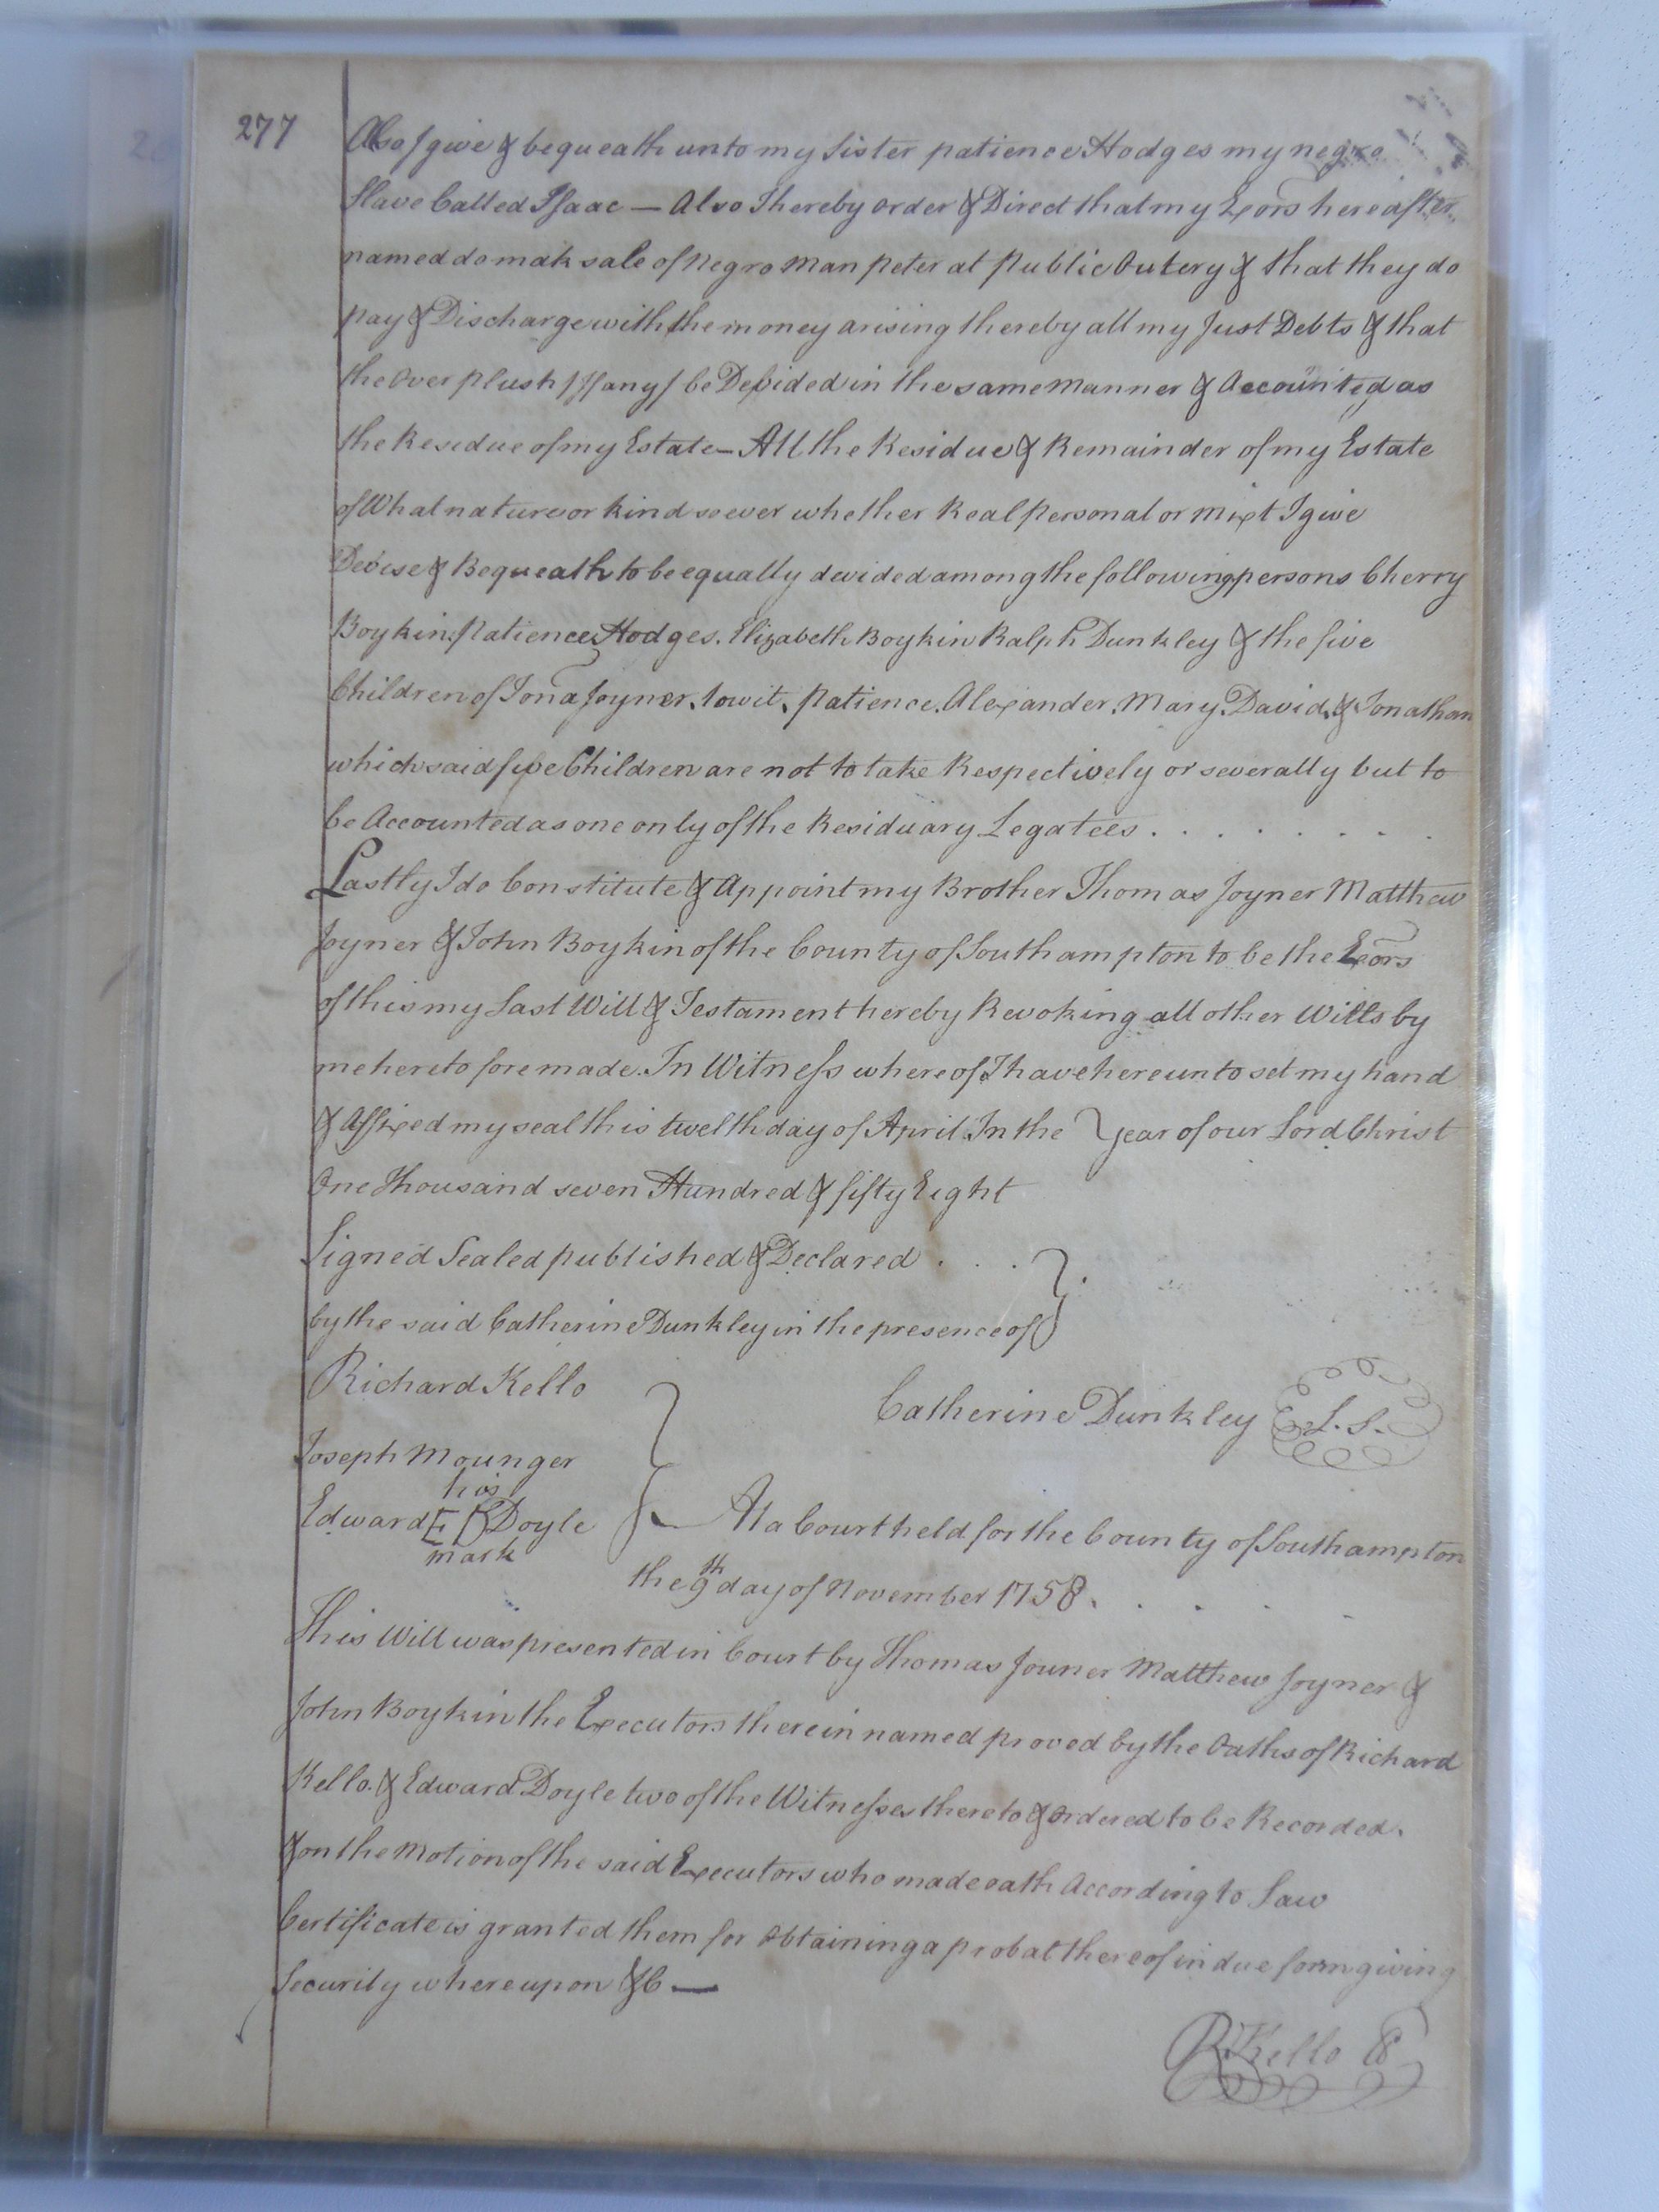 277
Also I give & bequeath unto my Sister patience Hodges my negro
Slave Called Isaac — Also I hereby order & Direct that my Exors hereafter
named do mak sale of Negro Man Peter at Public Outcry & that they do
pay & Discharge with the money arising thereby all my Just Debts & that
the Over plush /If any/ be Devided in the same Manner & Accounted as
the Residue of my Estate – All the Residue & Remainder of my Estate
of What nature or kind soever whether Real personal or mixt I give
Devise & Bequeath to be equally devided among the following persons Cherry
Boykin. Patience Hodges. Elizabeth Boykin Ralph Dunkley & the five
Children of Jona Joyner. towit, Patience. Alexander. Mary. David. & Jonathan
which said five Children are not to take Respectively or severally but to
be Accounted as one only of the Residuary Legatees . . . . . . . .
Lastly I do Constitute & Appoint my Brother Thomas Joyner Matthew
Joyner & John Boykin of the County of Southampton to be the Exors
of this my Last Will & Testament hereby Revoking all other Wills by
me hereto fore made. In Witness where of I have here unto set my hand
& Affixed my seal this twelth day of April In the Year of our Lord Christ
One Thousand seven Hundred & fifty Eight
Signed Sealed published & Declared . . .
by the said Catherine Dunkley in the presence of
Richard Kello
Catherine Dunkley L.S.
Joseph Mounger
his
Edward E Doyle
mark
At a Court held for the County of Southampton
the 9th day of November 1758. . . . .
This Will was presented in Court by Thomas Jouner Matthew Joyner &
John Boykin the Executors therein named proved by the Oaths of Richard
Kello. & Edward Doyle two of the Witnesses thereto & Ordered to be Recorded.
& on the Motion of the said Executors who made oath According to Law
Certificate is granted them for Obtaining a probat thereof in due form giving
Security whereupon &C —
R Kello